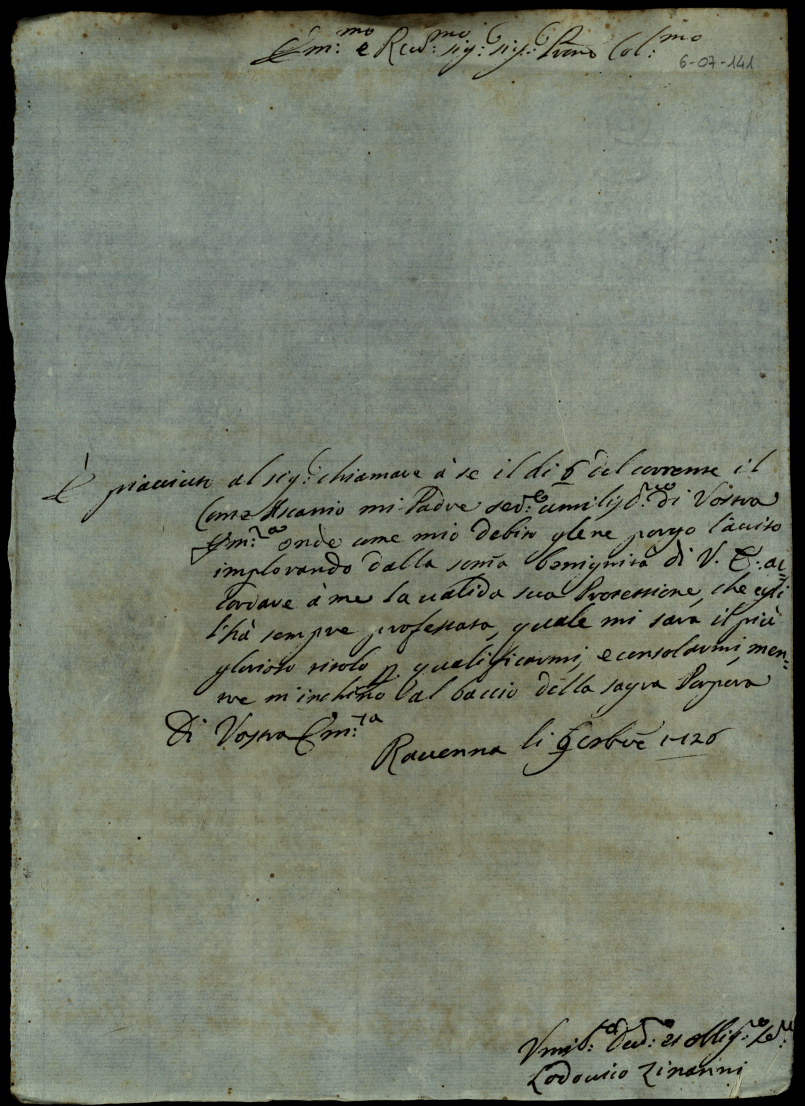 Em:mo e Rev:mo Sig:r Sig:r Prone Col:mo
6-07-141
È piacciuto al Sig:r chiamare à se il di 6 del corrente il
Conte Ascanio mi Padre ser:e umilis:mo di Vostra
Em:za onde come mio debito gle ne porgo l'auiso
implorando dalla soma benignità di V. E. ac=
cordare à me la ualida sua Protessione, che egli
l'hà sempre professata, quale mi sarà il più
glorioso titolo p qualificarmi, e consolarmi, men=
tre m'inchino al baccio della sagra Porpora
Di Vostra Em:za
Rauenna li 9 1726
Vmil:o Deu:o et oblig:o Se:re
Lodouico Zinanni